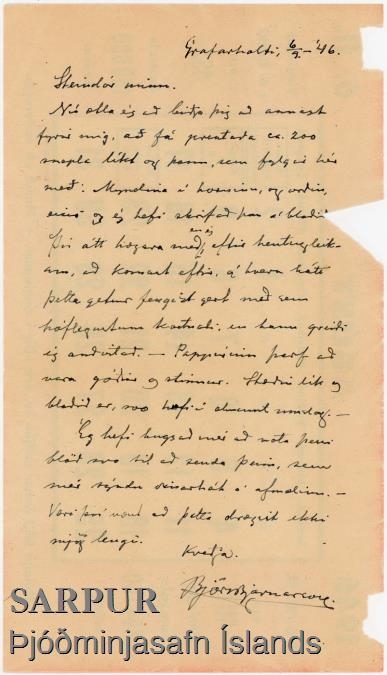 Grafarholti, 6/9 - '46.
Steindór minn.
Nú ætla ég að biðja þig að annast
fyrir mig, að fá prentaða ca. 200
snepla líkt og þann, sem fylgir hér
með: Myndina í horninu, og orðin,
eins og ég hefi skrifað þau á blaðið
Þú átt hægara með, en ég eftir hentugleik-
um, að komast eftir, á hvern hátt
þetta getur fengist gert með sem
hóflegustum kostnaði, en hann greiði
ég auðvitað. — Pappírinn þarf að
vera góður og stinnur. Stærð lík og
blaðið er, svo hæfi í almennt umslag. —
Ég hefi hugsað mér að nota þessi
blöð svo til að senda þeim, sem
mér sýndu vinarhót á afmælinu. —
Væri því vant að þetta drægist ekki
mjög lengi.
Kveðja.
Björn Bjarnarson.
SARPUR
Þjóðminjasafn Íslands